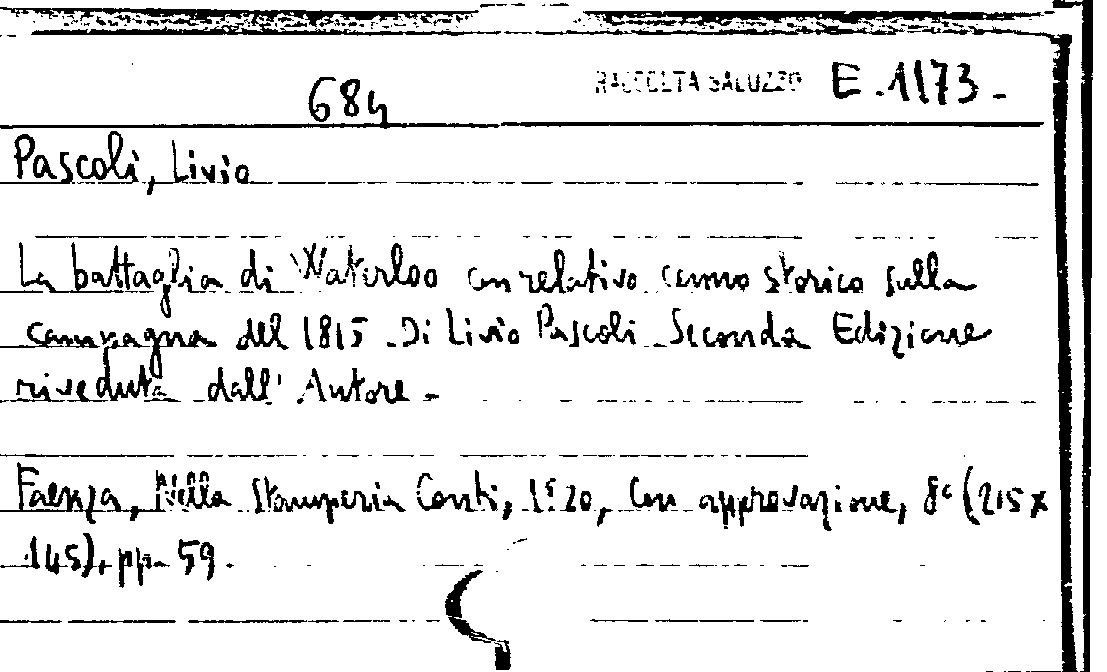 684 RACCOLTA SALUZZO E.1173.
Pascoli, Livio
La battaglia di Waterloo con relativo cenno storico sulla
campagna del 1815. Di Livio Pascoli. Seconda Edizione
riveduta dall'Autore.
Faenza, Nella Stamperia Conti, 1820, Con approvazione, 8° (215x
145), pp. 59.